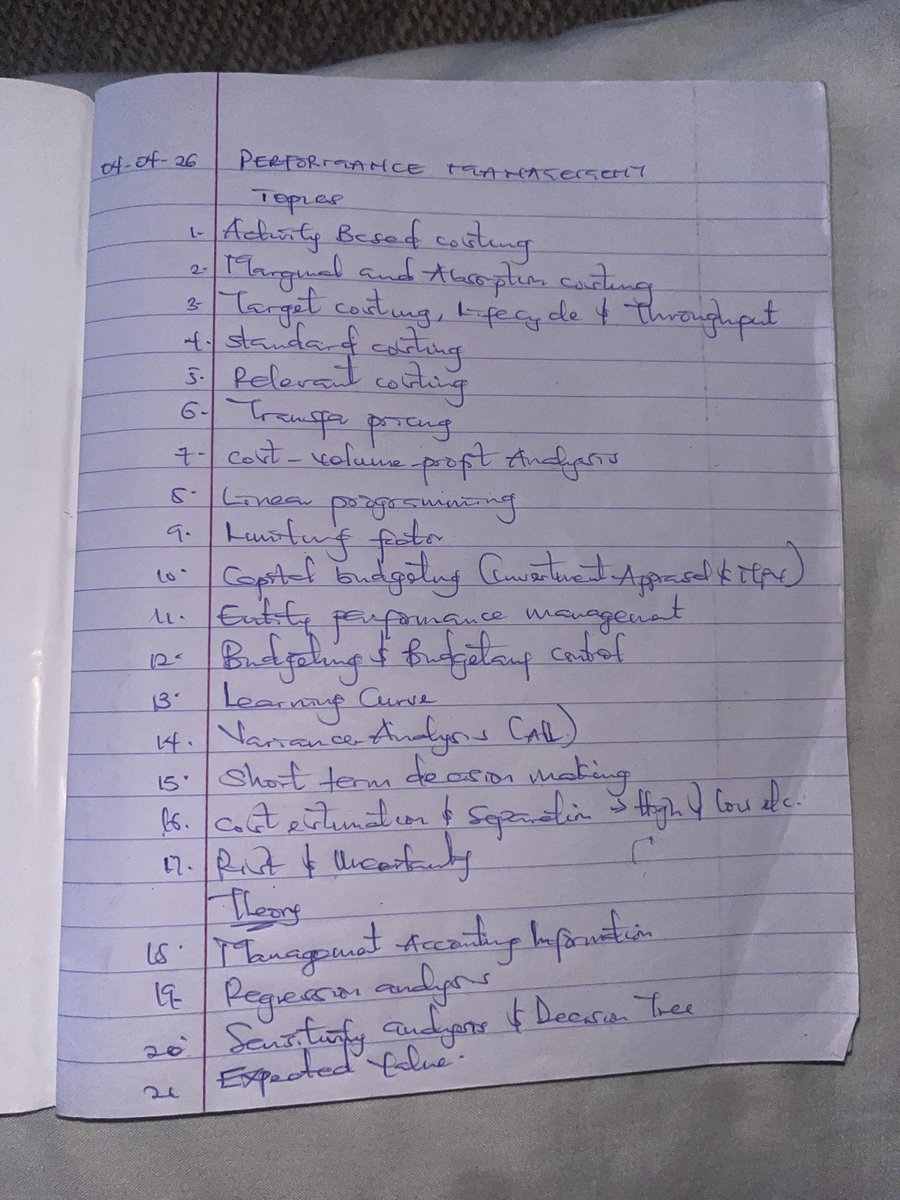 04-04-26 PERFORMANCE MANAGEMENT
Topics
1- Activity Based costing
2- Marginal and Absorption costing
3- Target costing, Lifecycle & Throughput
4. Standard costing
5. Relevant costing
6- Transfer pricing
7- Cost-volume-profit Analysis
8. Linear programming
9. Limiting factor
10. Capital budgeting (Investment Appraisal &
11. Entity performance management
12. Budgeting & Budgetary control
13. Learning Curve
14. Variance Analysis (ALL)
15. Short term decision making
16. Cost estimation & Separation → High & Low etc.
17. Risk & Uncertainty
Theory
18. Management Accounting Information
19- Regression analysis
20. Sensitivity analysis & Decision Tree
21 Expected Value.